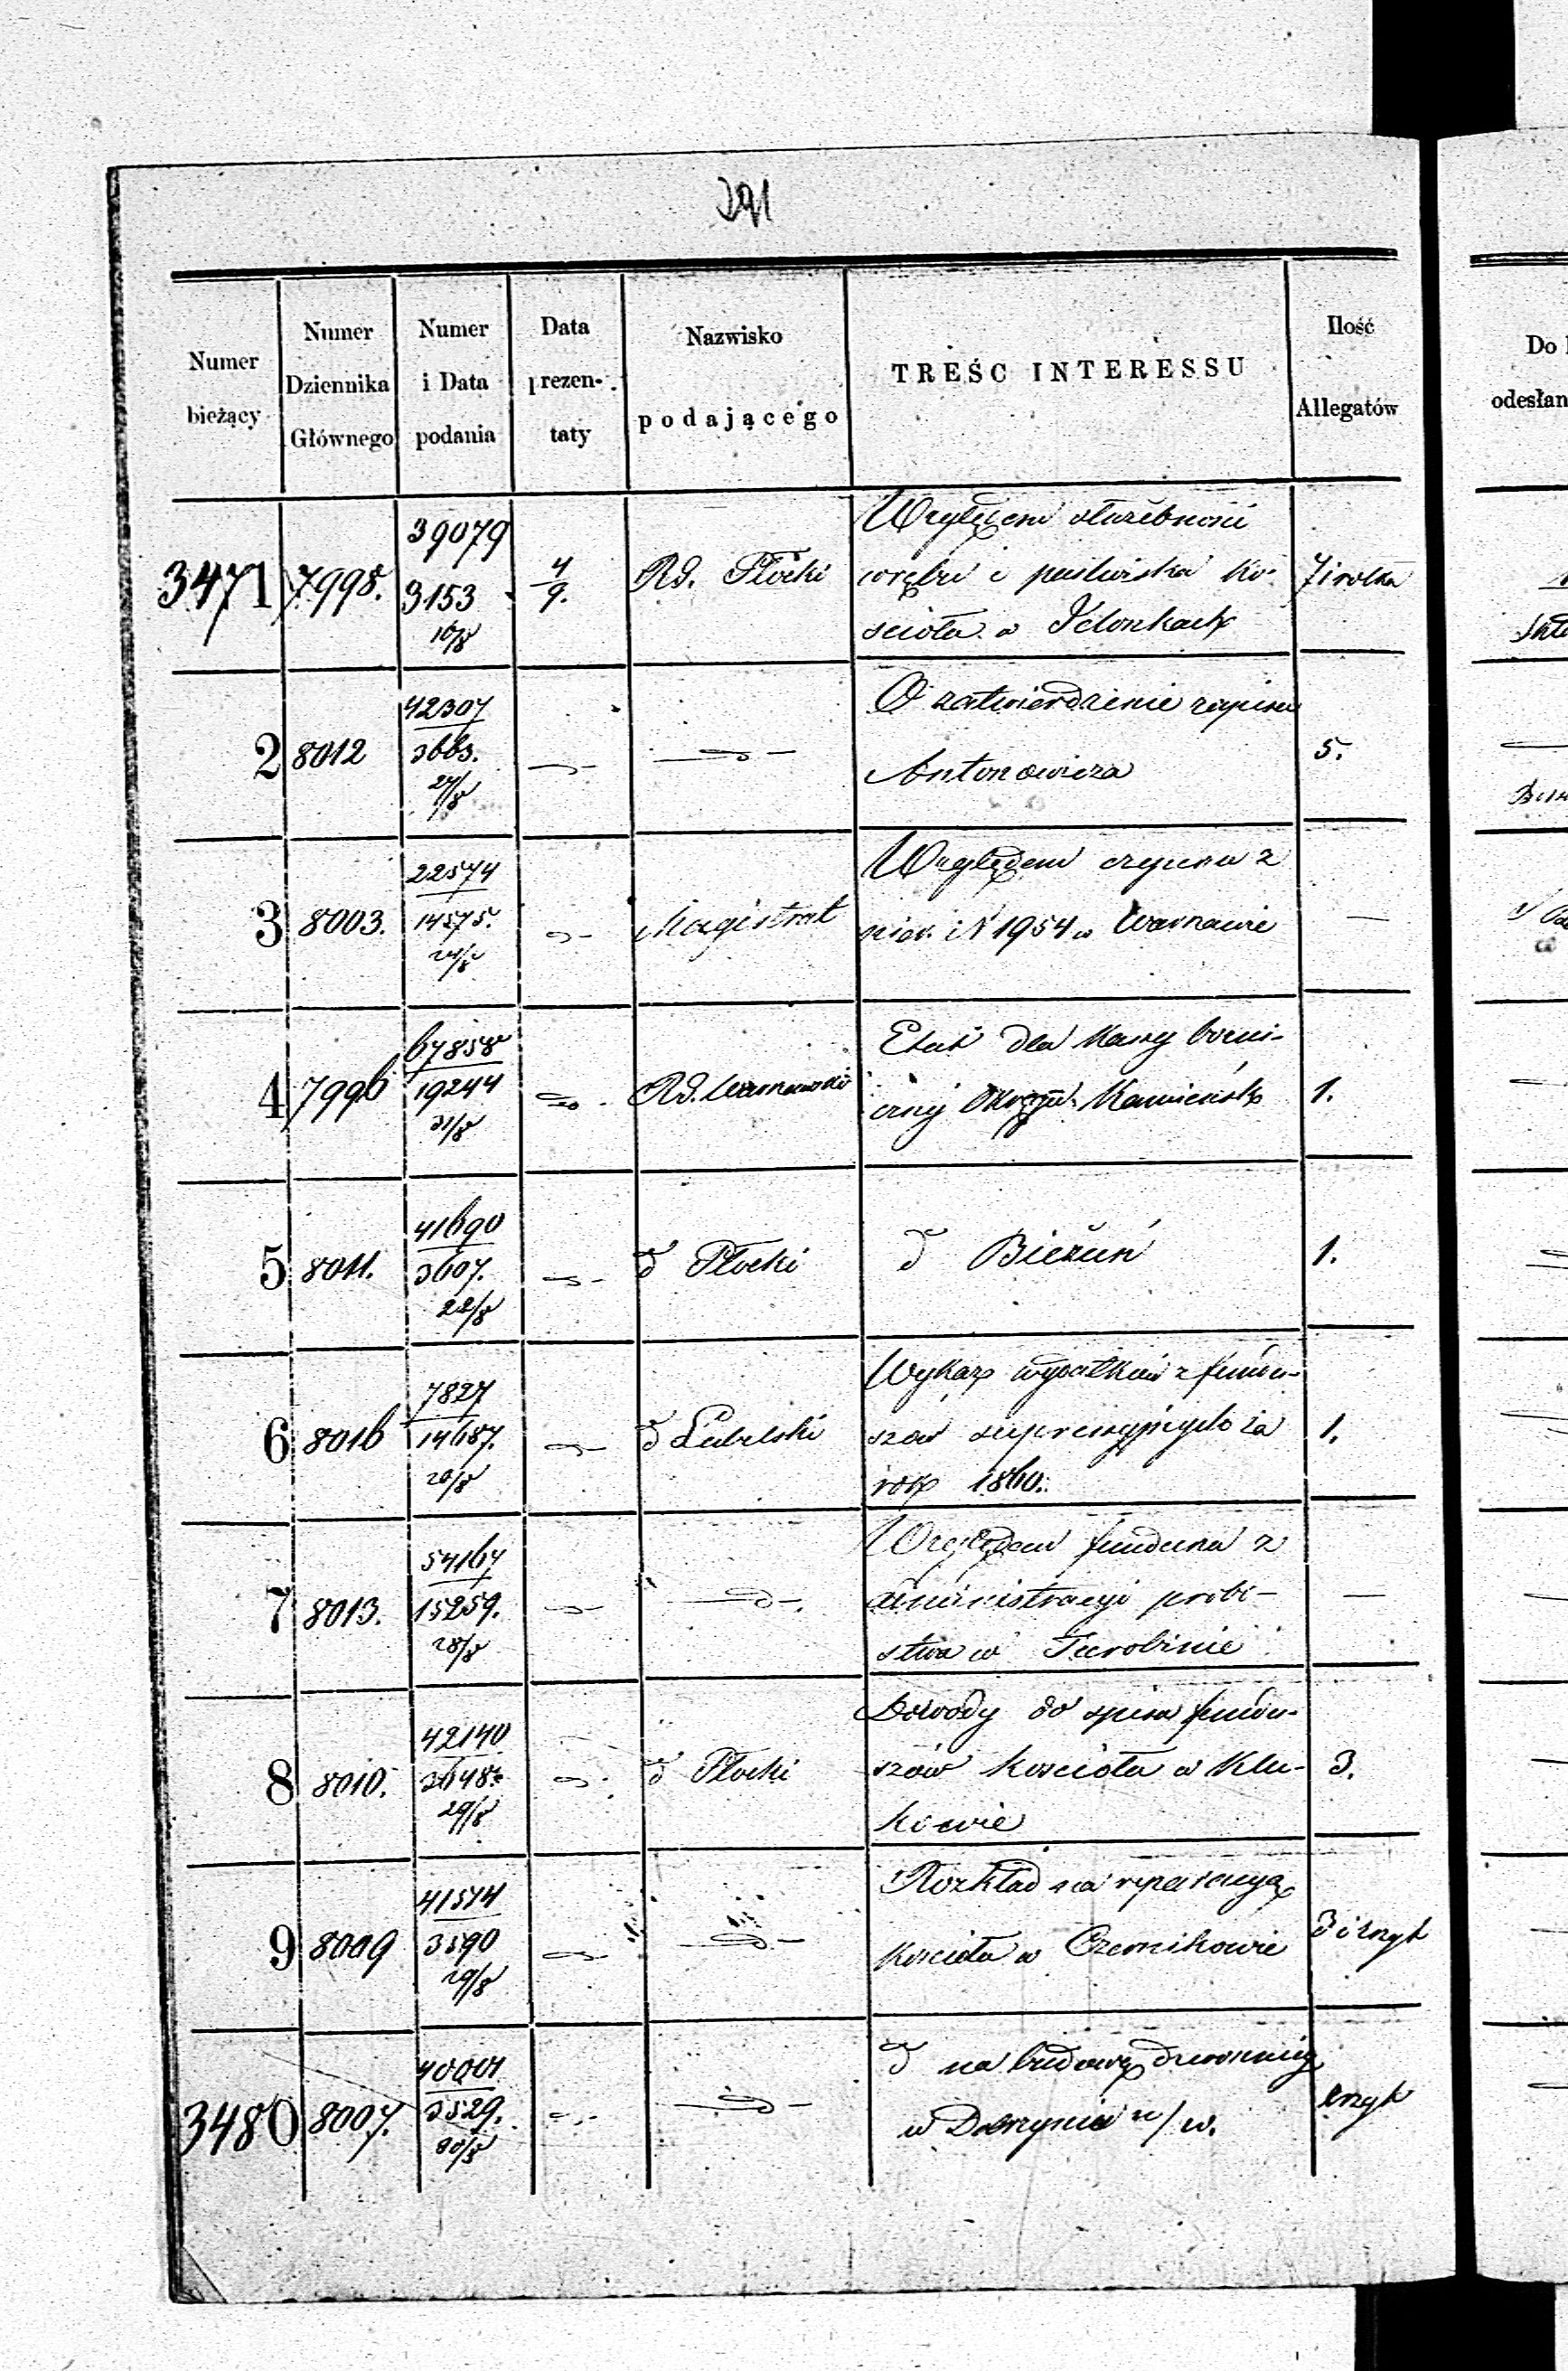 391
Numer bieżący
Numer Dziennika Głównego
Numer i Data podania
Data prezentaty
Nazwisko podającego
TREŚC INTERESSU
Ilość Allegatów
Do
odesłan
3471 7998. 39079 3153 16/8 4/9. RG. Płocki
Względem służebności
wrębu i pastwiska Ko-
ścioła w Jelonkach
7 i rolka
2 8012 42307 3663. 27/8
O zatwierdzenie zapisu
Antonowicza
5.
3 8003. 22574 14575. 24/8 Magistrat
Względem czynszu z
nier. N 1954 w Warszawie
—
4 7996 67858 19244 31/8 RG. Warszawski
Etat dla Kassy bożni-
cznej Okręgu Kamieńsk
1.
5 8011. 41690 3607. 22/8 d Płocki
d Bieżuń
1.
6 8016 7827 14687. 20/8 d Lubelski
Wykaz wydatków z fundu-
szów supressyjnych za
rok 1860.
1.
7 8013. 54167 15259. 28/8
Względem funduszu z
administracyi probo-
stwa w Turobinie
—
8 8010. 42140 3648. 29/8 d Płocki
Dowody do spisu fundu-
szów kościoła w Klu-
kowie
3.
9 8009 41574 3590 29/8
Rozkład na reparacyą
kościoła w Czernikowie
3 i zszyt
3480 8007. 40001 3529. 20/8
d na budowę dzwonnicy
w Dobrzyniu n/w.
zszyt